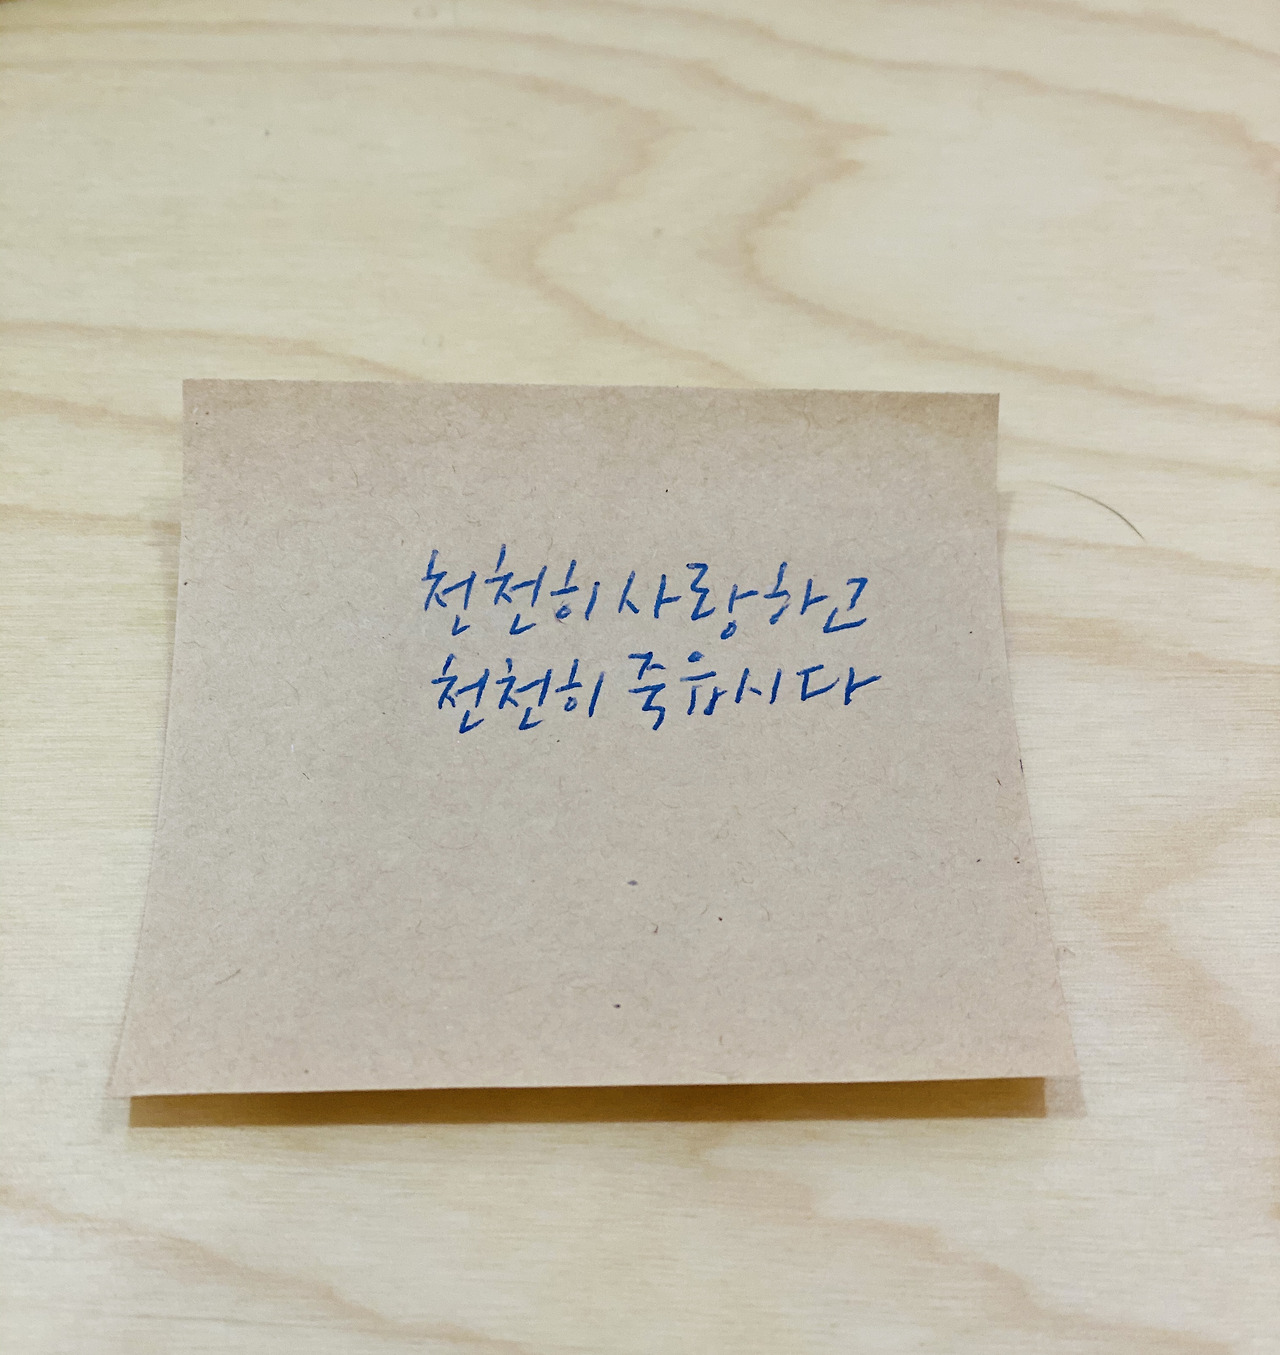 천천히 사랑하고
천천히 죽읍시다